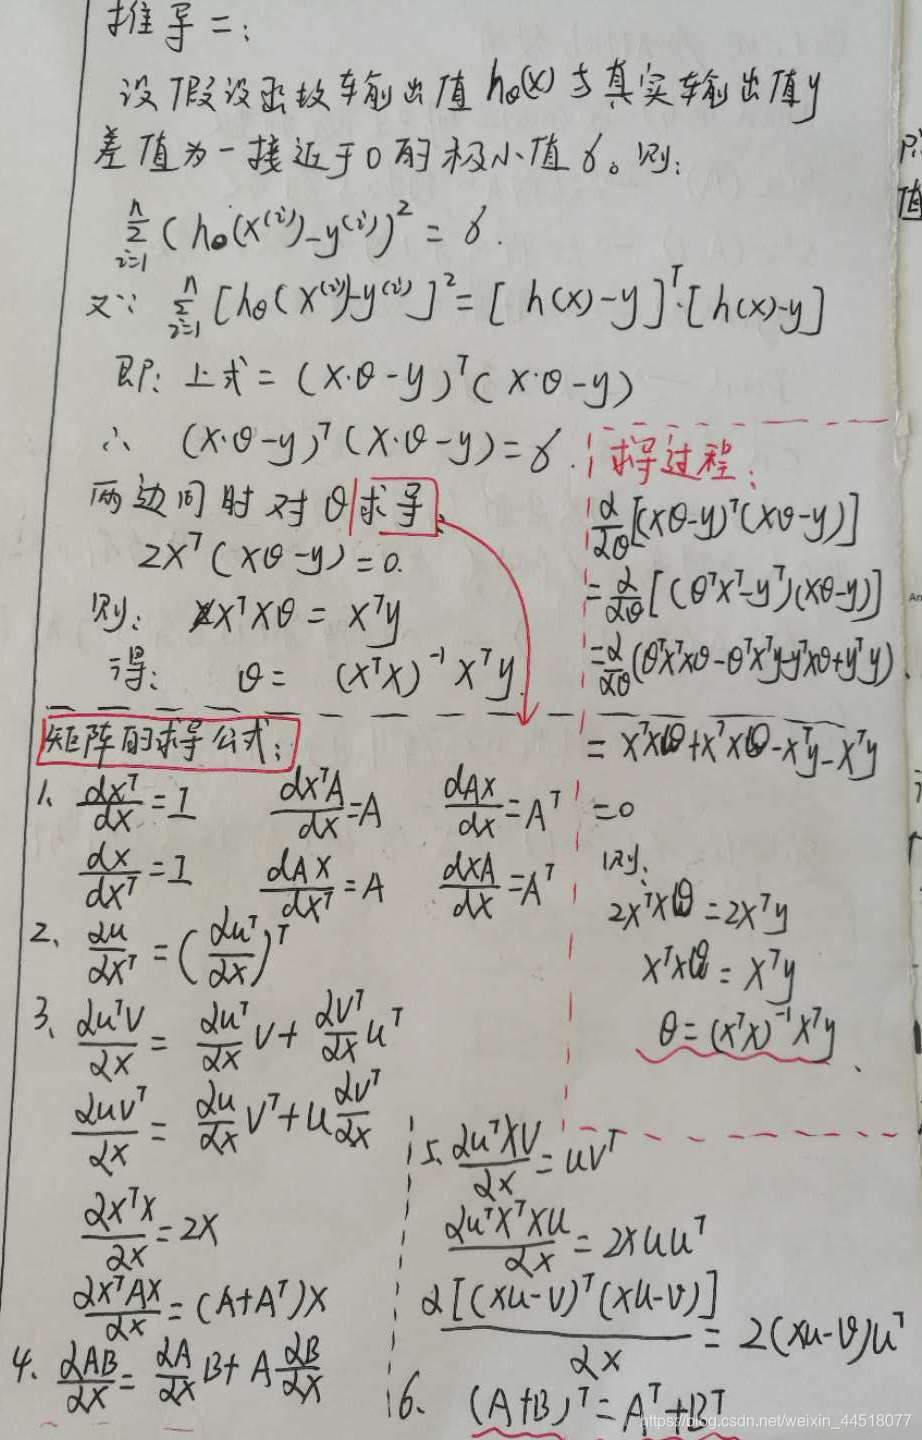 推导二:
设假设函数输出值hθ(x)与真实输出值y
差值为一接近于0的极小值δ。则:
∑ᵢ₌₁ⁿ (hθ(x⁽ⁱ⁾)-y⁽ⁱ⁾)² = δ.
又∵ ∑ᵢ₌₁ⁿ [hθ(x⁽ⁱ⁾)-y⁽ⁱ⁾]² = [h(x)-y]ᵀ·[h(x)-y]
即: 上式 = (X·θ-y)ᵀ(X·θ-y)
∴ (X·θ-y)ᵀ(X·θ-y)=δ.
两边同时对θ求导:
2Xᵀ(Xθ-y)=0.
则: XᵀXθ = Xᵀy
得: θ = (XᵀX)⁻¹Xᵀy.
求导过程:
∂/∂θ[(Xθ-y)ᵀ(Xθ-y)]
=∂/∂θ[(θᵀXᵀ-yᵀ)(Xθ-y)]
=∂/∂θ(θᵀXᵀXθ-θᵀXᵀy-yᵀXθ+yᵀy)
= XᵀXθ+XᵀXθ-Xᵀy-Xᵀy
=0
则:
2XᵀXθ=2Xᵀy
XᵀXθ=Xᵀy
θ=(XᵀX)⁻¹Xᵀy
矩阵的求导公式:
1、 dxᵀ/dx=I dxᵀA/dx=A dAx/dx=Aᵀ
dx/dxᵀ=I dAx/dxᵀ=A dxA/dx=Aᵀ
2、 ∂u/∂xᵀ=(∂uᵀ/∂x)ᵀ
3、 ∂uᵀv/∂x=∂uᵀ/∂x v+∂vᵀ/∂x uᵀ
∂uvᵀ/∂x=∂u/∂x vᵀ+u ∂vᵀ/∂x
∂xᵀx/∂x=2x
∂xᵀAx/∂x=(A+Aᵀ)x
4、 ∂AB/∂x=∂A/∂x B+A ∂B/∂x
5、 ∂uᵀXv/∂x=uvᵀ
∂uᵀXᵀXu/∂x=2Xuuᵀ
∂[(Xu-v)ᵀ(Xu-v)]/∂x=2(Xu-v)uᵀ
6、 (A+B)ᵀ=Aᵀ+Bᵀ
值
An
https://blog.csdn.net/weixin_44518077